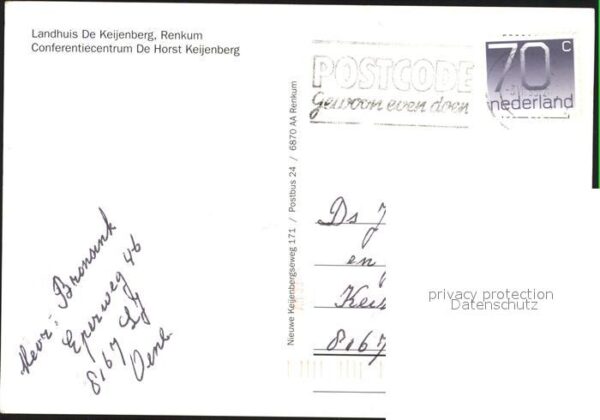 Landhuis De Keijenberg, Renkum
Conferentiecentrum De Horst Keijenberg
POSTCODE
gewoon even doen
70 c
nederland
Nieuwe Keijenbergseweg 171 / Postbus 24 / 6870 AA Renkum
Ds J
en
8167
privacy protection
Datenschutz
Mevr: Bronsink
Eperweg 46
8167
Oene